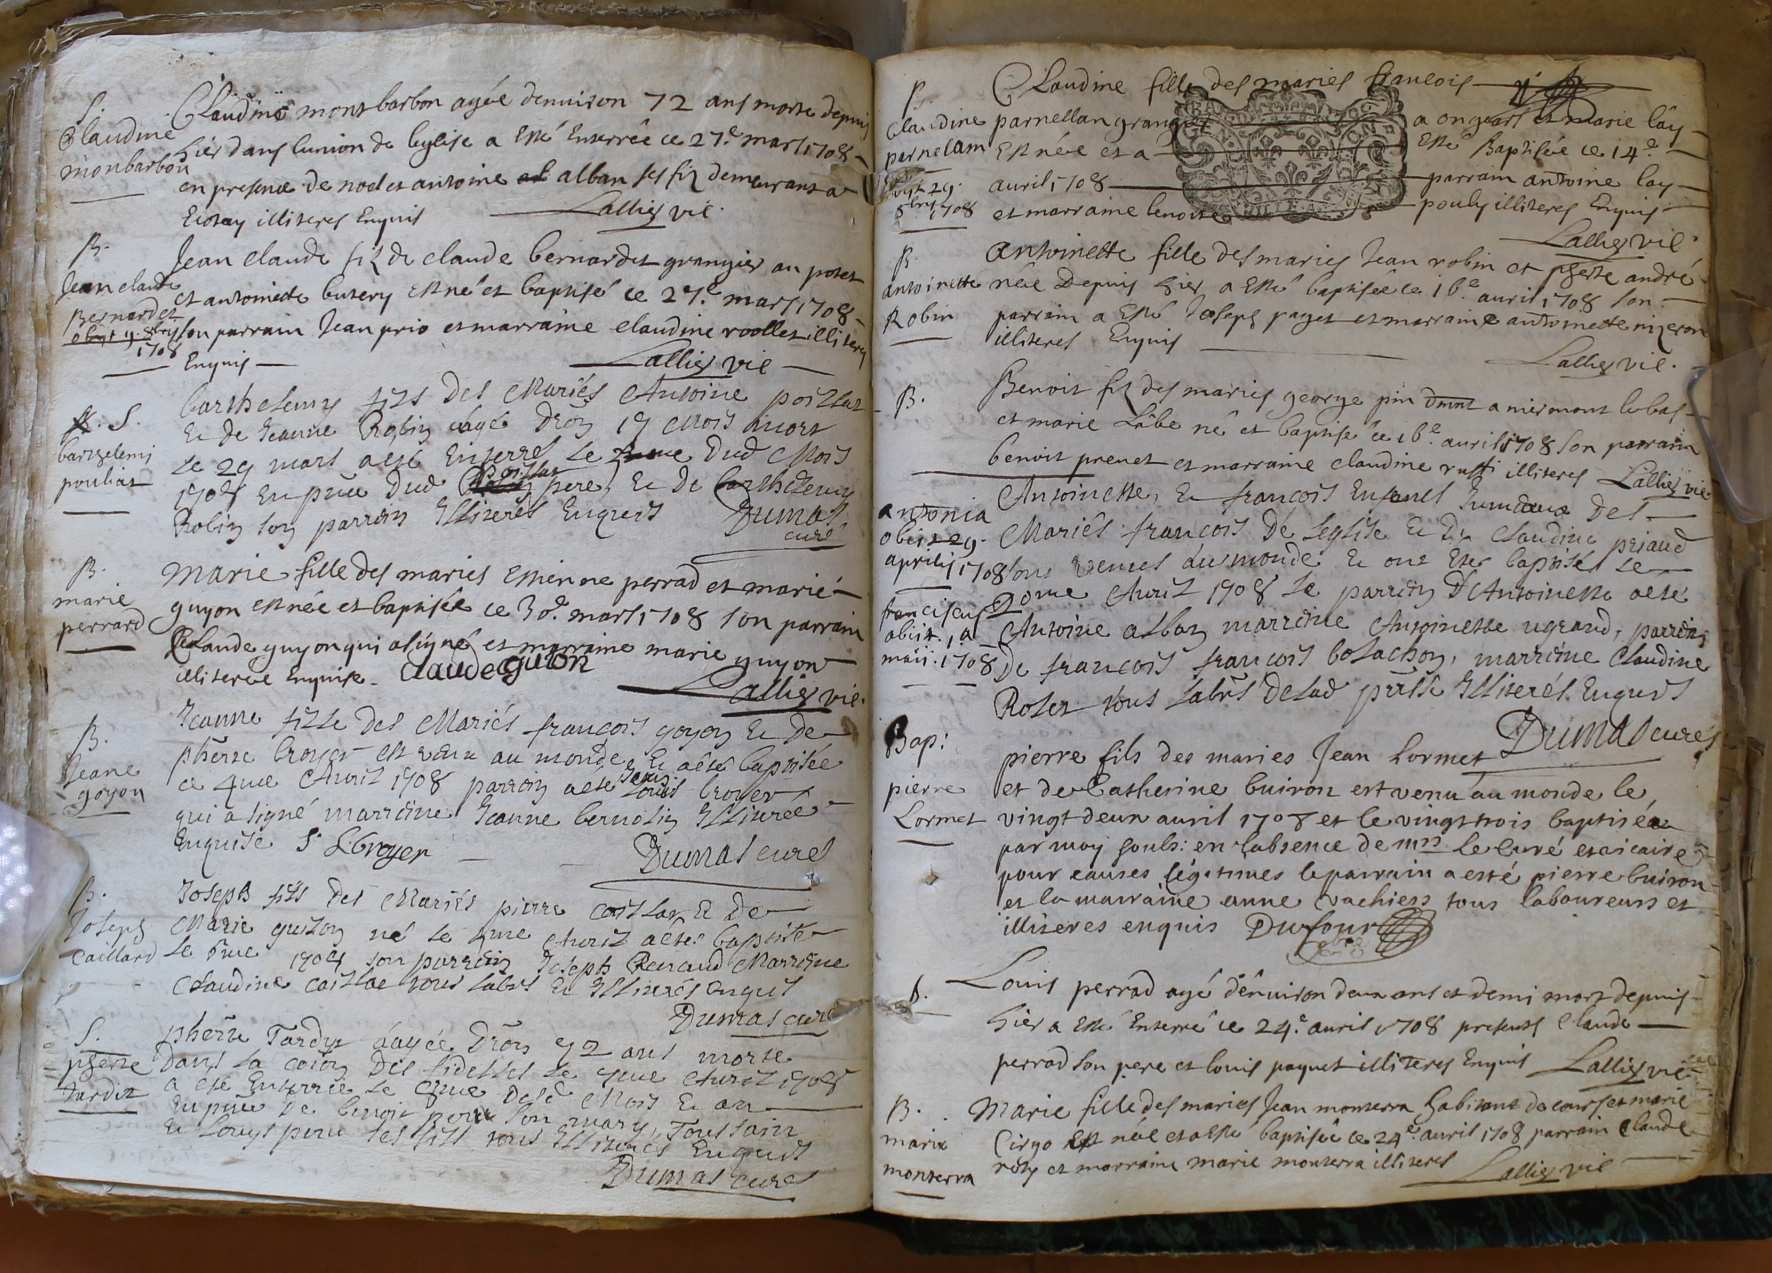 S.
Claudine
monbarbon
Claudine montbarbon agée denuiron 72 ans morte depuis
hier dans lunion de leglise a Esté Enterrée ce 27.e mars 1708
en presence de noel et antoine alban ses filz demeurants a
illiteres Enquis Lallier vic.
B.
Jean claude
Bernardet
obyt 9. 8bris
1708
Jean claude filz de claude bernardet grangier au potet
et antoinette butery Est né et baptisé ce 27.e mars 1708
son parrain Jean prio et marraine claudine roollet illiteres
Enquis Lallier vic
S.
barthelemi
pouliat
barthelemy fils des Mariés Antoine
Et de Jeanne Robin âagé 19 Mois mort
Le 29 mars a esté Enterré Le dud Mois
1708 En pnce dud pere, Et de barthelemy
Robin son parrain Illiterés Enquis Dumas
curé
B.
marie
perrard
Marie fille des mariés Estienne perrad et marie
guyon est née et baptisée ce 30.e mars 1708 son parrain
Claude guyon qui a signé et marraine marie guyon
illiterée Enquise. Claude Guion
Lallier vic.
B.
Jeane
goyon
Jeanne fille des Mariés françois goyon Et de
pherre broyer est venue au monde, Et a esté baptisée
ce 4me Avril 1708 parrain a esté Louis broyer
qui a signé marraine Jeanne bernolin Illiterée
Enquise L broyer
Dumas curé
B.
Joseph
Caillard
Joseph fils des Mariés pierre Et de
Marie guilon né Le 4me Avril a esté baptisé
Le 6me 1708 son parrain Joseph Renaud Marraine
Claudine tous Labrs Et Illiterés Enquis
Dumas curé
S.
pherre
tardit
pherre Tardy âagée 72 ans morte
dans la des fidelles Le 7me Avril 1708
a esté Enterrée Le 8me desd Mois Et an
En pnce de benoit son mary, Toussain
Et Louys ses fils tous Illiterés Enquis
Dumas curé
B.
Claudine
parnelam
obyt 29.
8bris 1708
Claudine fille des maries francois
parnellan granger a ongeart et marie lay
Est née et a Esté Baptisée ce 14.e
auril 1708 parrain antoine lay
et marraine benoite pouly illiteres Enquis
Lallier vic.
B.
antoinette
Robin
antoinette fille des maries Jean robin et pherte andré
née Depuis hier a Esté baptisée le 16.e auril 1708 son
parrain a Esté Joseph paget et marraine antoinette nizeron
illiteres Enquis
Lallier vic.
B.
Benoit filz des maries george pin a miermont le bas
et marie Labe né et baptisé ce 16.e auril 1708 son parrain
benoit preuet et marraine claudine ruffi illiteres Lallier vic
antonia
obiit 29.
aprilis 1708
franciscus
obiit. 1a
maii. 1708
Antoinette, Et françois Enfants Jumeaux des
Mariés françois de Leglise Et de Claudine priaud
sont venus au monde Et ont Estes baptisés Le
20me Avril 1708 Le parrain D'Antoinette a esté
Antoine alban marraine Antoinette ugraud, parrain
De françois françois bolachon, marraine Claudine
Rolet tous Labrs de lad prsse Illiterés Enquis
Dumas curé
Bap:
pierre
Lormet
pierre fils des maries Jean Lormet
et de Catherine buiron est venu au monde le
vingt deux auril 1708 et le vingt trois baptisé
par moy soubs: en l'absence de mrs Le Curé et vicaire
pour causes légitimes le parrain a esté pierre buiron
et la marraine anne vachiers tous laboureurs et
illiteres enquis Dufour
S.
Louis perrad agé dênuiron deux ans et demi mort depuis
hier a Esté Enterré ce 24.e auril 1708 presents Claude
perrad son pere et louis paquet illiteres Enquis Lallier vic.
B.
marie
monterra
Marie fille des maries Jean monterra habitant de cours et marie
Cirgo Est née et a esté baptisée ce 24.e auril 1708 parrain Claude
rey et marraine marie monterra illiteres Lallier vic